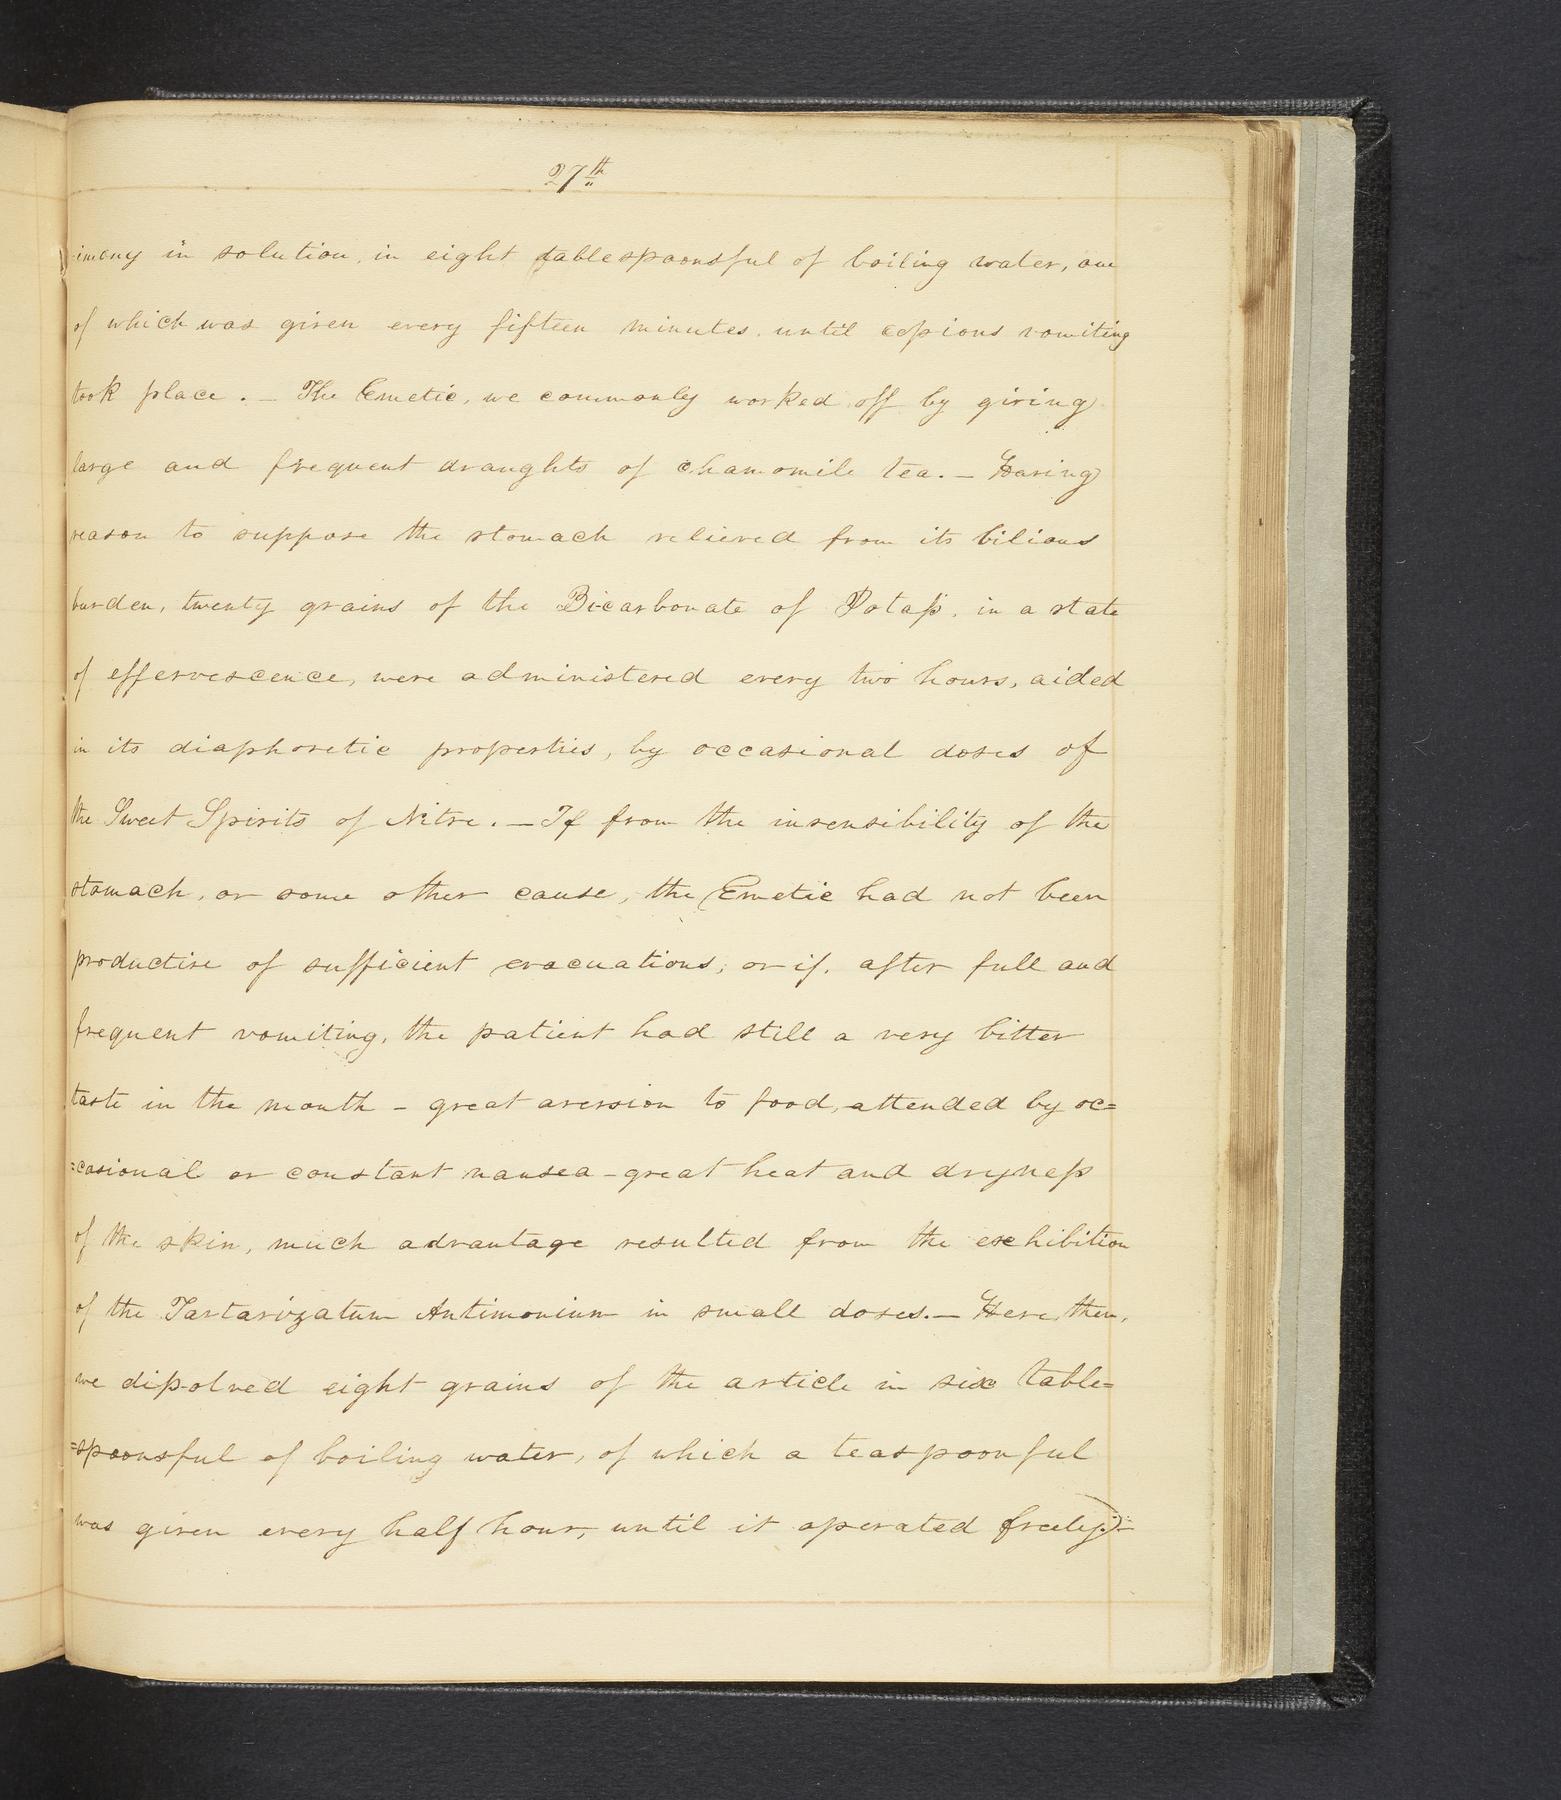 27th
-imony in solution, in eight tablespoonsful of boiling water, one
of which was given every fifteen minutes, until copious vomiting
took place. — The Emetic, we commonly worked off by giving
large and frequent draughts of chamomile tea. — Having
reason to suppose the stomach relieved from its bilious
burden, twenty grains of the Bicarbonate of Potass, in a state
of effervescence, were administered every two hours, aided
in its diaphoretic properties, by occasional doses of
the Sweet Spirits of Nitre. — If from the insensibility of the
stomach, or some other cause, the Emetic had not been
productive of sufficient evacuations; or if, after full and
frequent vomiting, the patient had still a very bitter
taste in the mouth - great aversion to food, attended by oc=
=casional or constant nausea - great heat and dryness
of the skin, much advantage resulted from the exhibition
of the Tartarizatum Antimonium in small doses. — Here, then,
we dissolved eight grains of the article in six table=
=spoonsful of boiling water, of which a teaspoonful
was given every half hour, until it operated freely. —